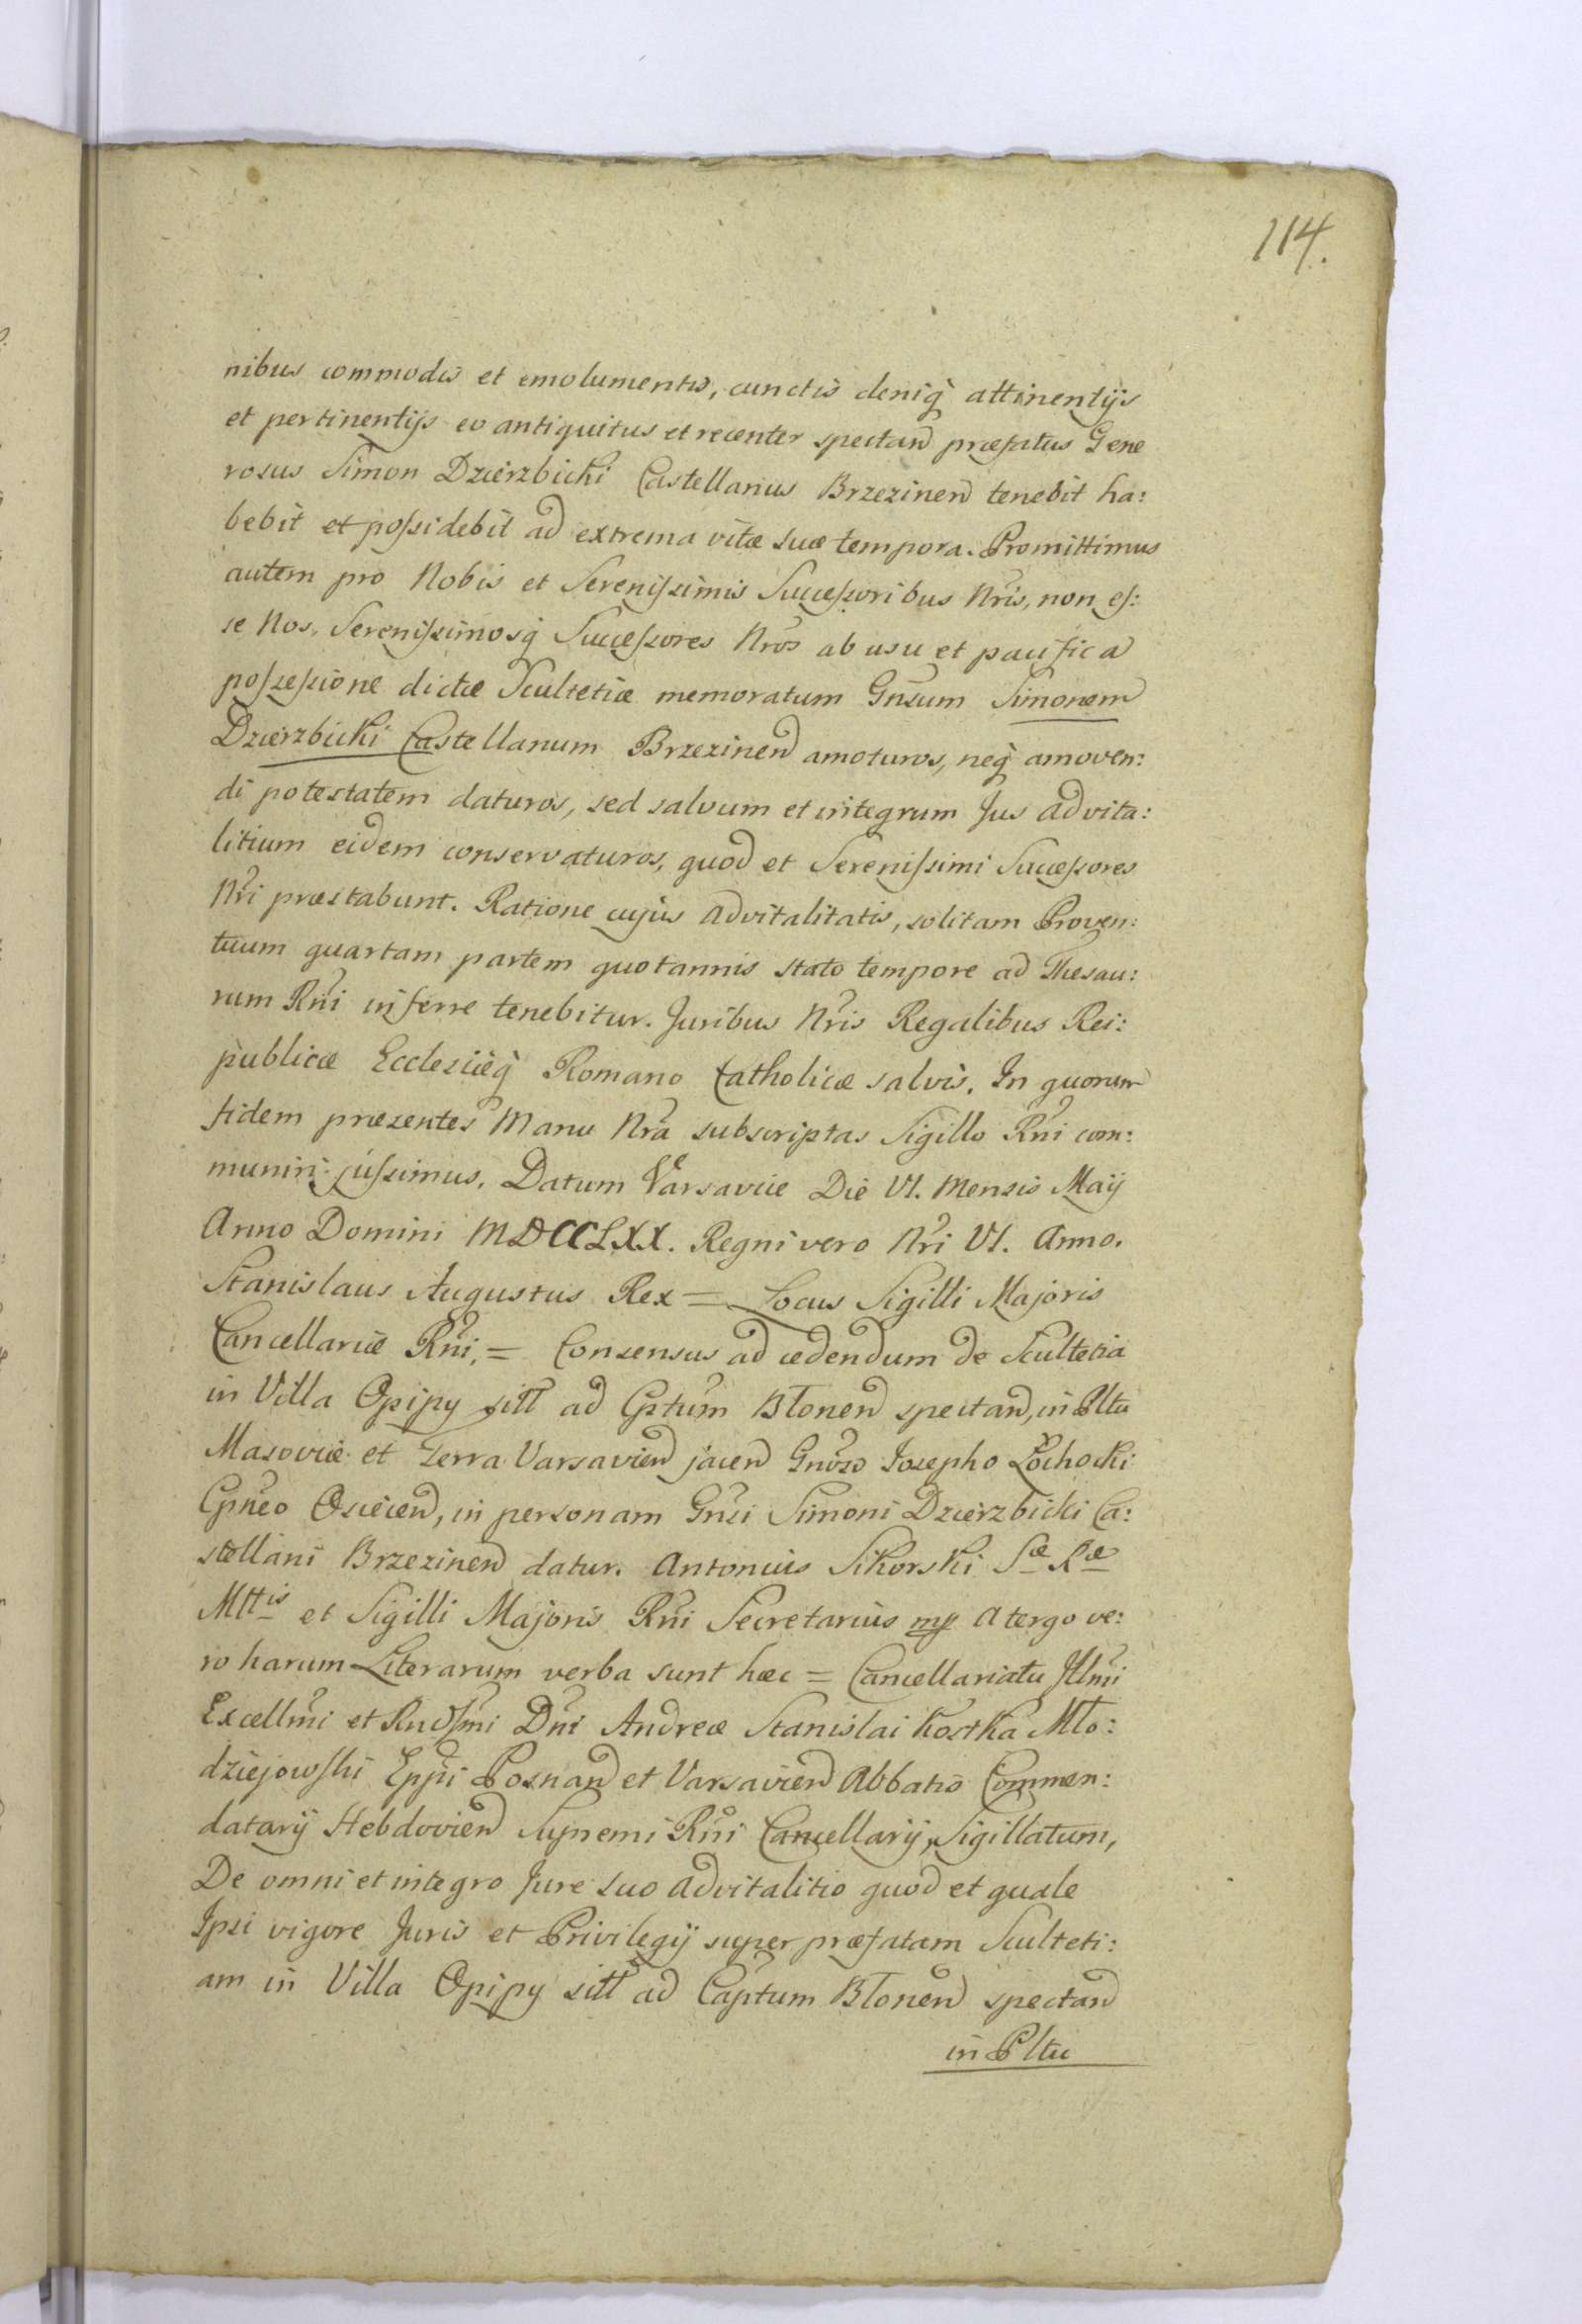 114.
nibus commodis et emolumentis, cunctis deniq̀ attinentijs
et pertinentijs eo antiquitus et recenter spectand præfatus Gene
rosus Simon Dzierzbicki Castellanus Brzezinen̄ tenebit ha:
bebit et poſsidebit ad extrema vitæ suæ tempora. Promittimus
autem pro Nobis et Sereniſsimis Succeſsoribus Nr̃is, non eſ:
se Nos, Sereniſsimosq̀ Succeſsores Nr̃os ab usu et pacifica
poſseſsione dictæ Scultetiæ memoratum Gn̄sum Simonem
Dzierzbicki Castellanum Brzezinen̄ amoturos, neq̀ amoven:
di potestatem daturos, sed salvum et integrum Jus advita:
litium eidem conservaturos, quod et Sereniſsimi Succeſsores
Nr̃i præstabunt. Ratione cujus advitalitatis, solitam Proven:
tuum quartam partem quotannis stato tempore ad Thesau:
rum Rñi inferre tenebitur. Juribus Nr̃is Regalibus Rei:
publicæ Ecclesiæq̀ Romano Catholicæ salvis. In quorum
fidem præsentes Manu Nr̃a subscriptas Sigillo Rñi com:
muniri juſsimus. Datum Varsaviæ Die VI. Mensis Maij
Anno Domini MDCCLXX. Regni vero Nr̃i VI. Anno.
Stanislaus Augustus Rex = Locus Sigilli Majoris
Cancellariæ Rñi. = Consensus ad cedendum de Scultetia
in Villa Opipy sitt ad Cp̃tum Błonen̄ spectan̄, in Pltu
Masoviæ et Terra Varsavien̄ jacen̄ Gnõso Josepho Łochocki
Cpñeo Osiecen̄, in personam Gnsi Simoni Dzierzbicki Ca:
stellani Brzezinen̄ datur. Antonius Sikorski Sæ Ræ
Mttis et Sigilli Majoris Rñi Secretarius mp A tergo ve:
ro harum Literarum verba sunt hæc = Cancellariatu Jllm̃i
Excellm̃i et Rndſmi Dñi Andreæ Stanislai Kostka Mło:
dziejowſki Epp̃i Posnan̄ et Varsavien̄ Abbatis Commen:
datarij Hebdovien̄ Supremi Rñi Cancellarij, Sigillatum,
De omni et integro Jure suo advitalitio quod et quale
Ipsi vigore Juris et Privilegij super præfatam Sculteti:
am in Villa Opipy sitt ad Captum Błonen̄ spectan̄
in Pltu